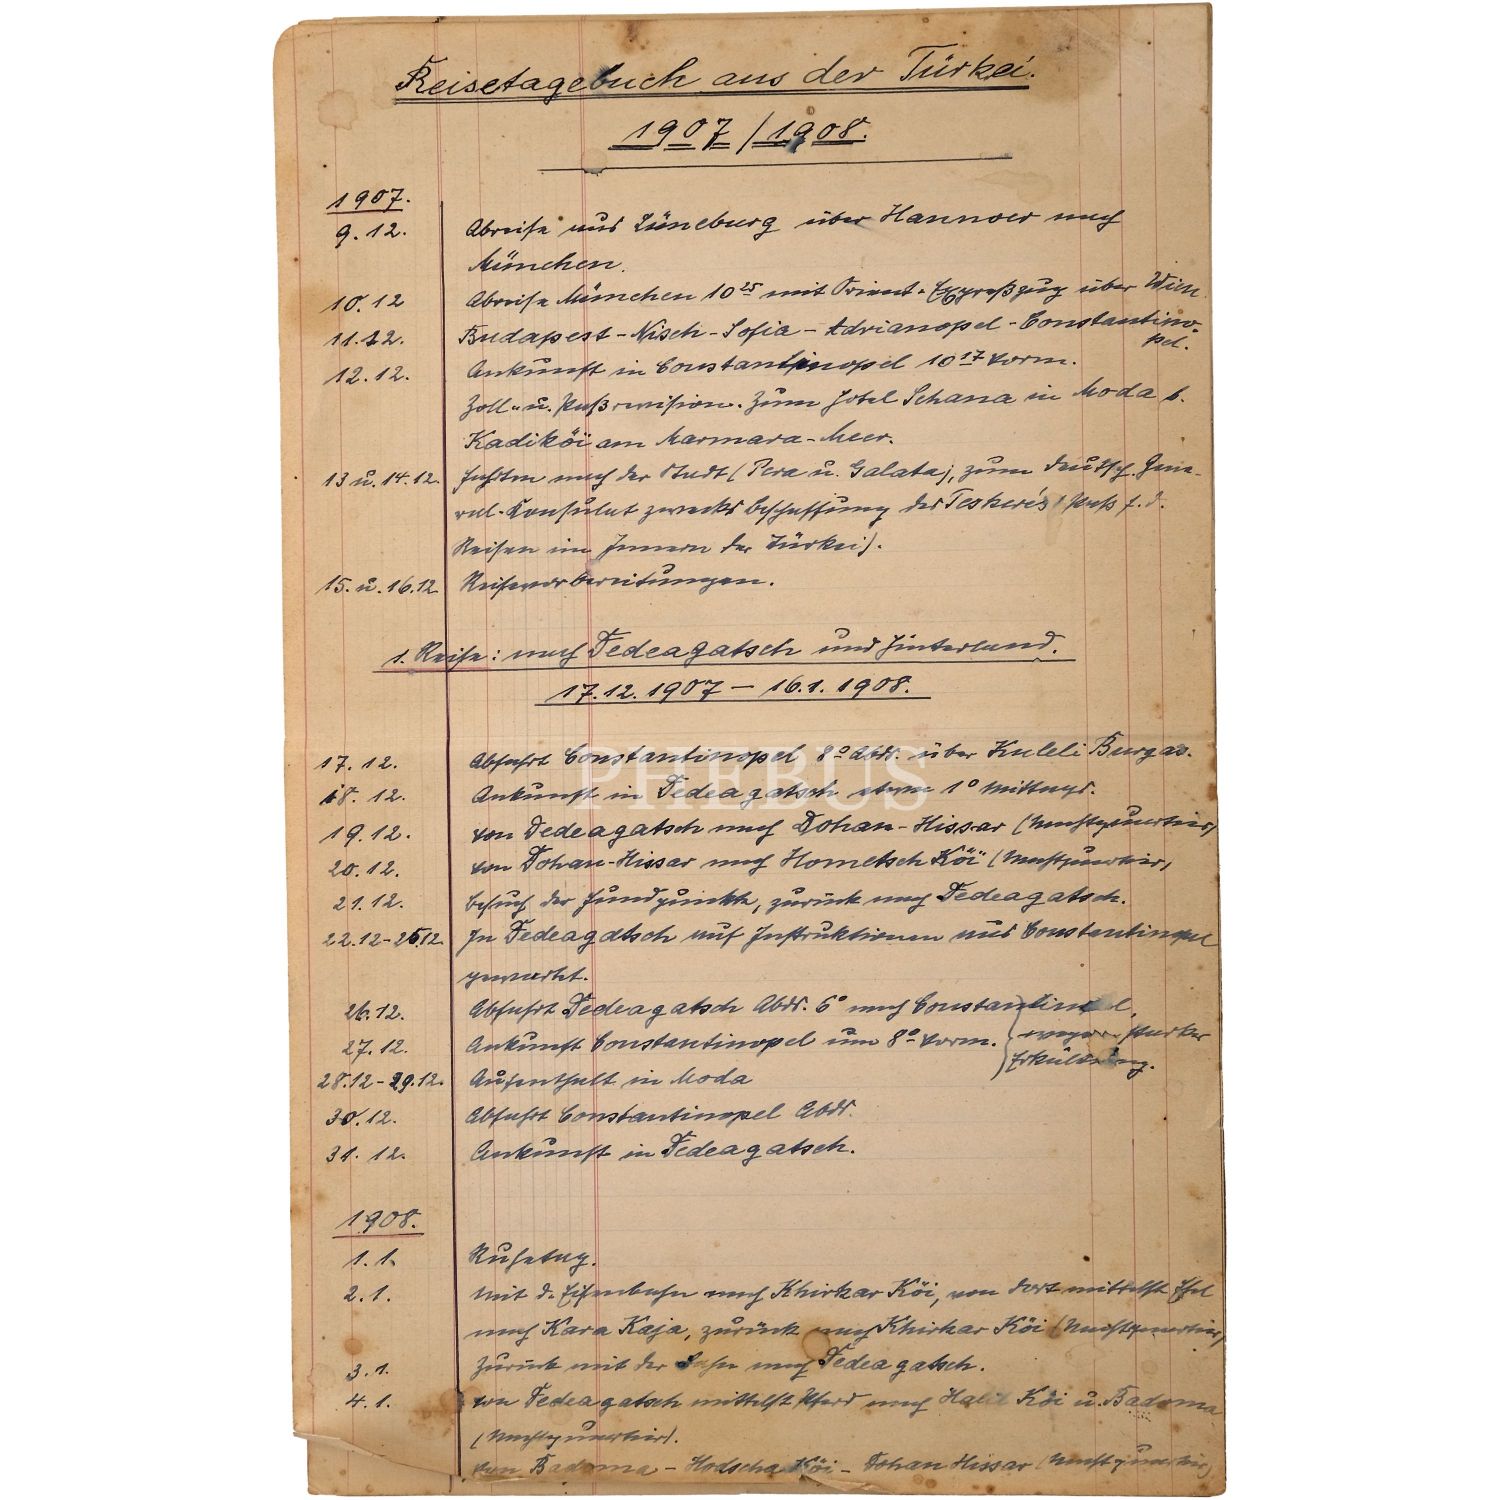 Reisetagebuch aus der Türkei.
1907/1908.
1907.
9.12. Abreise aus Lüneburg über Hannover nach
München.
10.12 Abreise München 10²⁵ mit Orient-Expreßzug über Wien
11.12. Budapest - Nisch - Sofia - Adrianopel - Constantino-
pel.
12.12. Ankunft in Constantinopel 10¹⁷ vorm.
Zoll- u. Paßrevision. Zum Hotel Schana in Moda b.
Kadiköi am Marmara-Meer.
13 u. 14.12. Fahrten nach der Stadt (Pera u. Galata), zum deutsch. Gene-
ral-Konsulat zwecks Beschaffung des Teskerés (Paß f. d.
Reisen im Innern der Türkei).
15. u. 16.12 Reisevorbereitungen.
1. Reise: nach Dedeagatsch und Hinterland.
17.12.1907 - 16.1.1908.
17.12. Abfahrt Constantinopel 8⁰ Abds. über Kuleli Burgas.
PHEBUS
18.12. Ankunft in Dedeagatsch etwa 1⁰ Mittags.
19.12. von Dedeagatsch nach Dohan-Hissar (Nachtquartier)
20.12. von Dohan-Hissar nach Hometsch Köi (Nachtquartier)
21.12. Besuch der Fundpunkte, zurück nach Dedeagatsch.
22.12-25.12. In Dedeagatsch auf Instruktionen aus Constantinopel
gewartet.
26.12. Abfahrt Dedeagatsch Abds. 6⁰ nach Constantinopel,
27.12. Ankunft Constantinopel um 8⁰ vorm. } wegen starker
Erkältung.
28.12-29.12. Aufenthalt in Moda
30.12. Abfahrt Constantinopel Abds.
31.12. Ankunft in Dedeagatsch.
1908.
1.1. Ruhetag.
2.1. Mit d. Eisenbahn nach Khirkar Köi, von dort mittelst Esel
nach Kara Kaja, zurück nach Khirkar Köi (Nachtquartier)
3.1. Zurück mit der Bahn nach Dedeagatsch.
4.1. von Dedeagatsch mittelst Pferd nach Halil Köi u. Badoma
(Nachtquartier).
von Badoma - Hodscha Köi - Dohan Hissar (Nachtquartier)